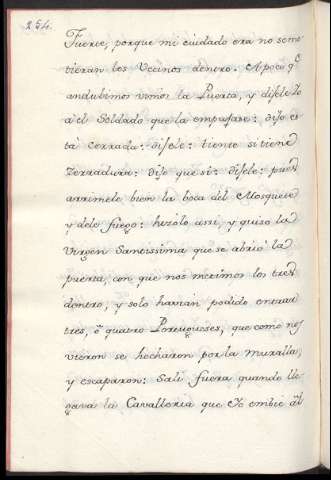 254.
Fuerce, porque mi cuidado era no sen=
tieran los Vecinos dentro. A poco q.e
andubimos vimos la Puerta, y dijele
a el Soldado que la empujase: dijo es
tà cerrada: dijele: tiente si tiene
Zerradura: dijo que si: dijele: pues
arrimele bien la boca del Mosquete
y dele fuego: hizólo assi, y quiso la
Virgen Santissima que se abriò la
puerta, con que nos metimos los tres
dentro, y solo havian podido entrar
tres, ò quatro Portugueses, que como nos
vieron se hecharon por la muralla,
y escaparon: Salì fuera quando lle
gava la Cavalleria que Yo embiè al